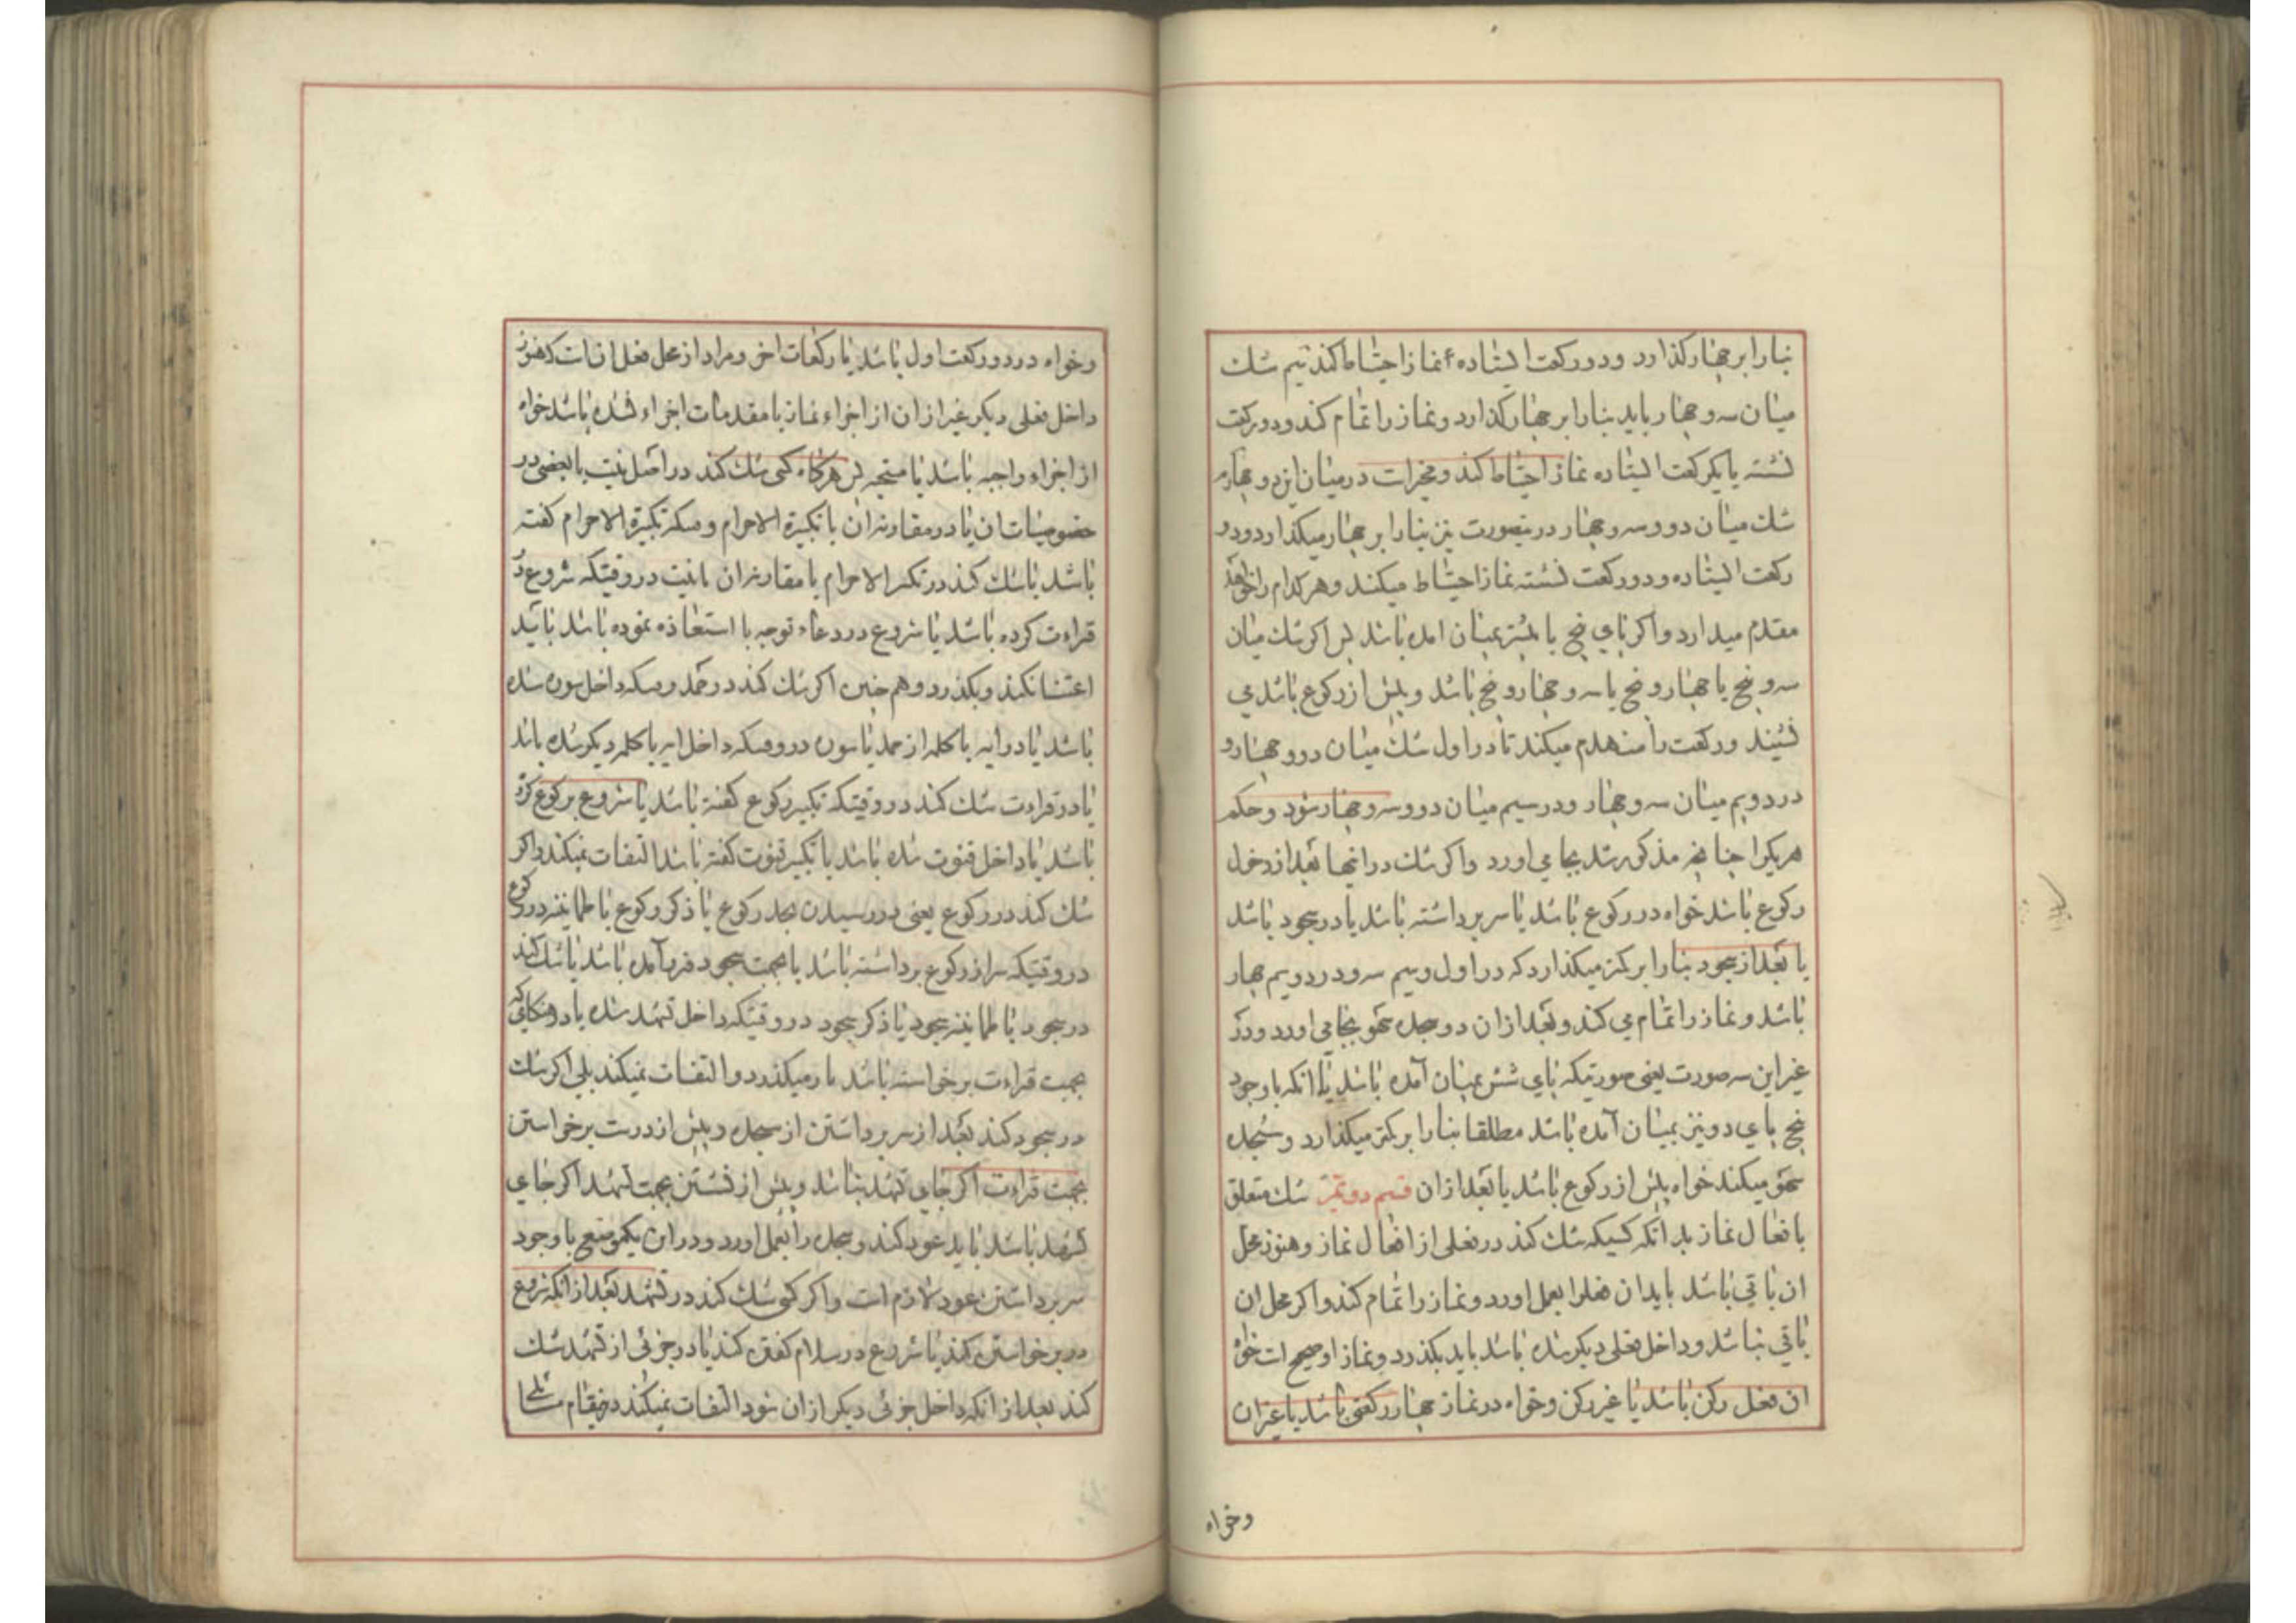 بنا را بر چهار گذارد و دو رکعت ایستاده نماز احتیاط کند سیم شک
میان سه و چهار باید بنا را بر چهار گذارد و نماز را تمام کند و دو رکعت
نشسته یا یکرکعت ایستاده نماز احتیاط کند و مخیر است در میان این دو چهارم
شک میان دو و سه و چهار درینصورت نیز بنا را بر چهار میکذارد و دو
رکعت ایستاده و دو رکعت نشسته نماز احتیاط میکند و هر کدام را خواهد
مقدم میدارد و اکر پای پنج یا بیشتر بمیان امده باشد پس اکر شک میان
سه و پنج یا چهار و پنج یا سه و چهار و پنج باشد و پیش از رکوع باشد می
نشیند و رکعت را منهدم میکند تا در اول شک میان دو و چهار و
در دویم میان سه و چهار و در سیم میان دو و سه و چهار شود و حکم
هریکرا چنانچه مذکور شد بجا می اورد و اکر شک در انها بعد از دخول
رکوع باشد خواه در رکوع باشد یا سر برداشته باشد یا در سجود باشد
یا بعد از سجود بنا را بر کمتر میکذارد که در اول و سیم سه و در دویم چهار
باشد و نماز را تمام می کند و بعد از ان دو سجده سهو بجا می اورد و در
غیر این سه صورت یعنی صورتیکه پای شش بمیان آمده باشد یا انکه با وجود
پنج پای دو نیز بمیان آمده باشد مطلقا بنا را بر کمتر میکذارد و سجده
سهو میکند خواه پیش از رکوع باشد یا بعد از ان قسم دویم شک متعلق
بافعال نماز بدانکه کسیکه شک کند در فعلی از افعال نماز و هنوز محل
ان باقی باشد باید ان فعلرا بعمل اورد و نماز را تمام کند و اکر محل ان
باقی نباشد و داخل فعلی دیکر شده باشد باید بکذرد و نماز او صحیح است خواه
ان فعل رکن باشد یا غیر رکن و خواه در نماز چهار رکعتی باشد یا غیر ان
وخواه
وخواه در دو رکعت اول باشد یا رکعات اخر و مراد از محل فعل انست که هنوز
داخل فعلی دیکر غیر از ان از اجزاء نماز یا مقدمات اجزاء نشده باشد خواه
از اجزاء واجبه باشد یا مستحبه پس هرکاه کسی شک کند در اصل نیت یا بعضی در
خصوصیات ان یا در مقارنه ان با تکبیرة الاحرام وقتیکه تکبیرة الاحرام کفته
باشد یا شک کند در تکبیر الاحرام یا مقارنه ان با نیت در وقتیکه شروع در
قراءت کرده باشد یا شروع در دعاء توجه یا استعاذه نموده باشد باید
اعتنا نکند و بکذرد و هم چنین اکر شک کند در حمد وقتیکه داخل سوره شده
باشد یا در ایه یا کلمه از حمد یا سوره در وقتیکه داخل ایه یا کلمه دیکر شده باشد
یا در قراءت شک کند در وقتیکه تکبیر رکوع کفته باشد یا شروع برکوع کرده
باشد یا داخل قنوت شده باشد یا تکبیر قنوت کفته باشد التفات نمیکند و اکر
شک کند در رکوع یعنی در رسیدن بحد رکوع یا ذکر رکوع یا طمانینه در رکوع
در وقتیکه سر از رکوع برداشته باشد یا بجهت سجود فرود آمده باشد یا شک کند
در سجود یا طمانینه سجود یا ذکر سجود در وقتیکه داخل تشهد شده یا در هنکامی که
بجهت قراءت برخواسته باشد باز میکذرد و التفات نمیکند بلی اکر شک
در سجود کند بعد از سر برداشتن از سجده و پیش از درست برخواستن
بجهت قراءت اکر جای تشهد نباشد و پیش از نشستن بجهت تشهد اکر جای
تشهد باشد باید عود کند و سجده را بعمل اورد و در این یکموضع با وجود
سر برداشتن عود لازم است و اکر کسی شک کند در تشهد بعد از انکه شروع
در برخواستن کند یا شروع در سلام کفتن کند یا در جزئی از تشهد شک
کند بعد از انکه داخل جزئی دیکر از ان شود التفات نمیکند درینمقام مسائلی